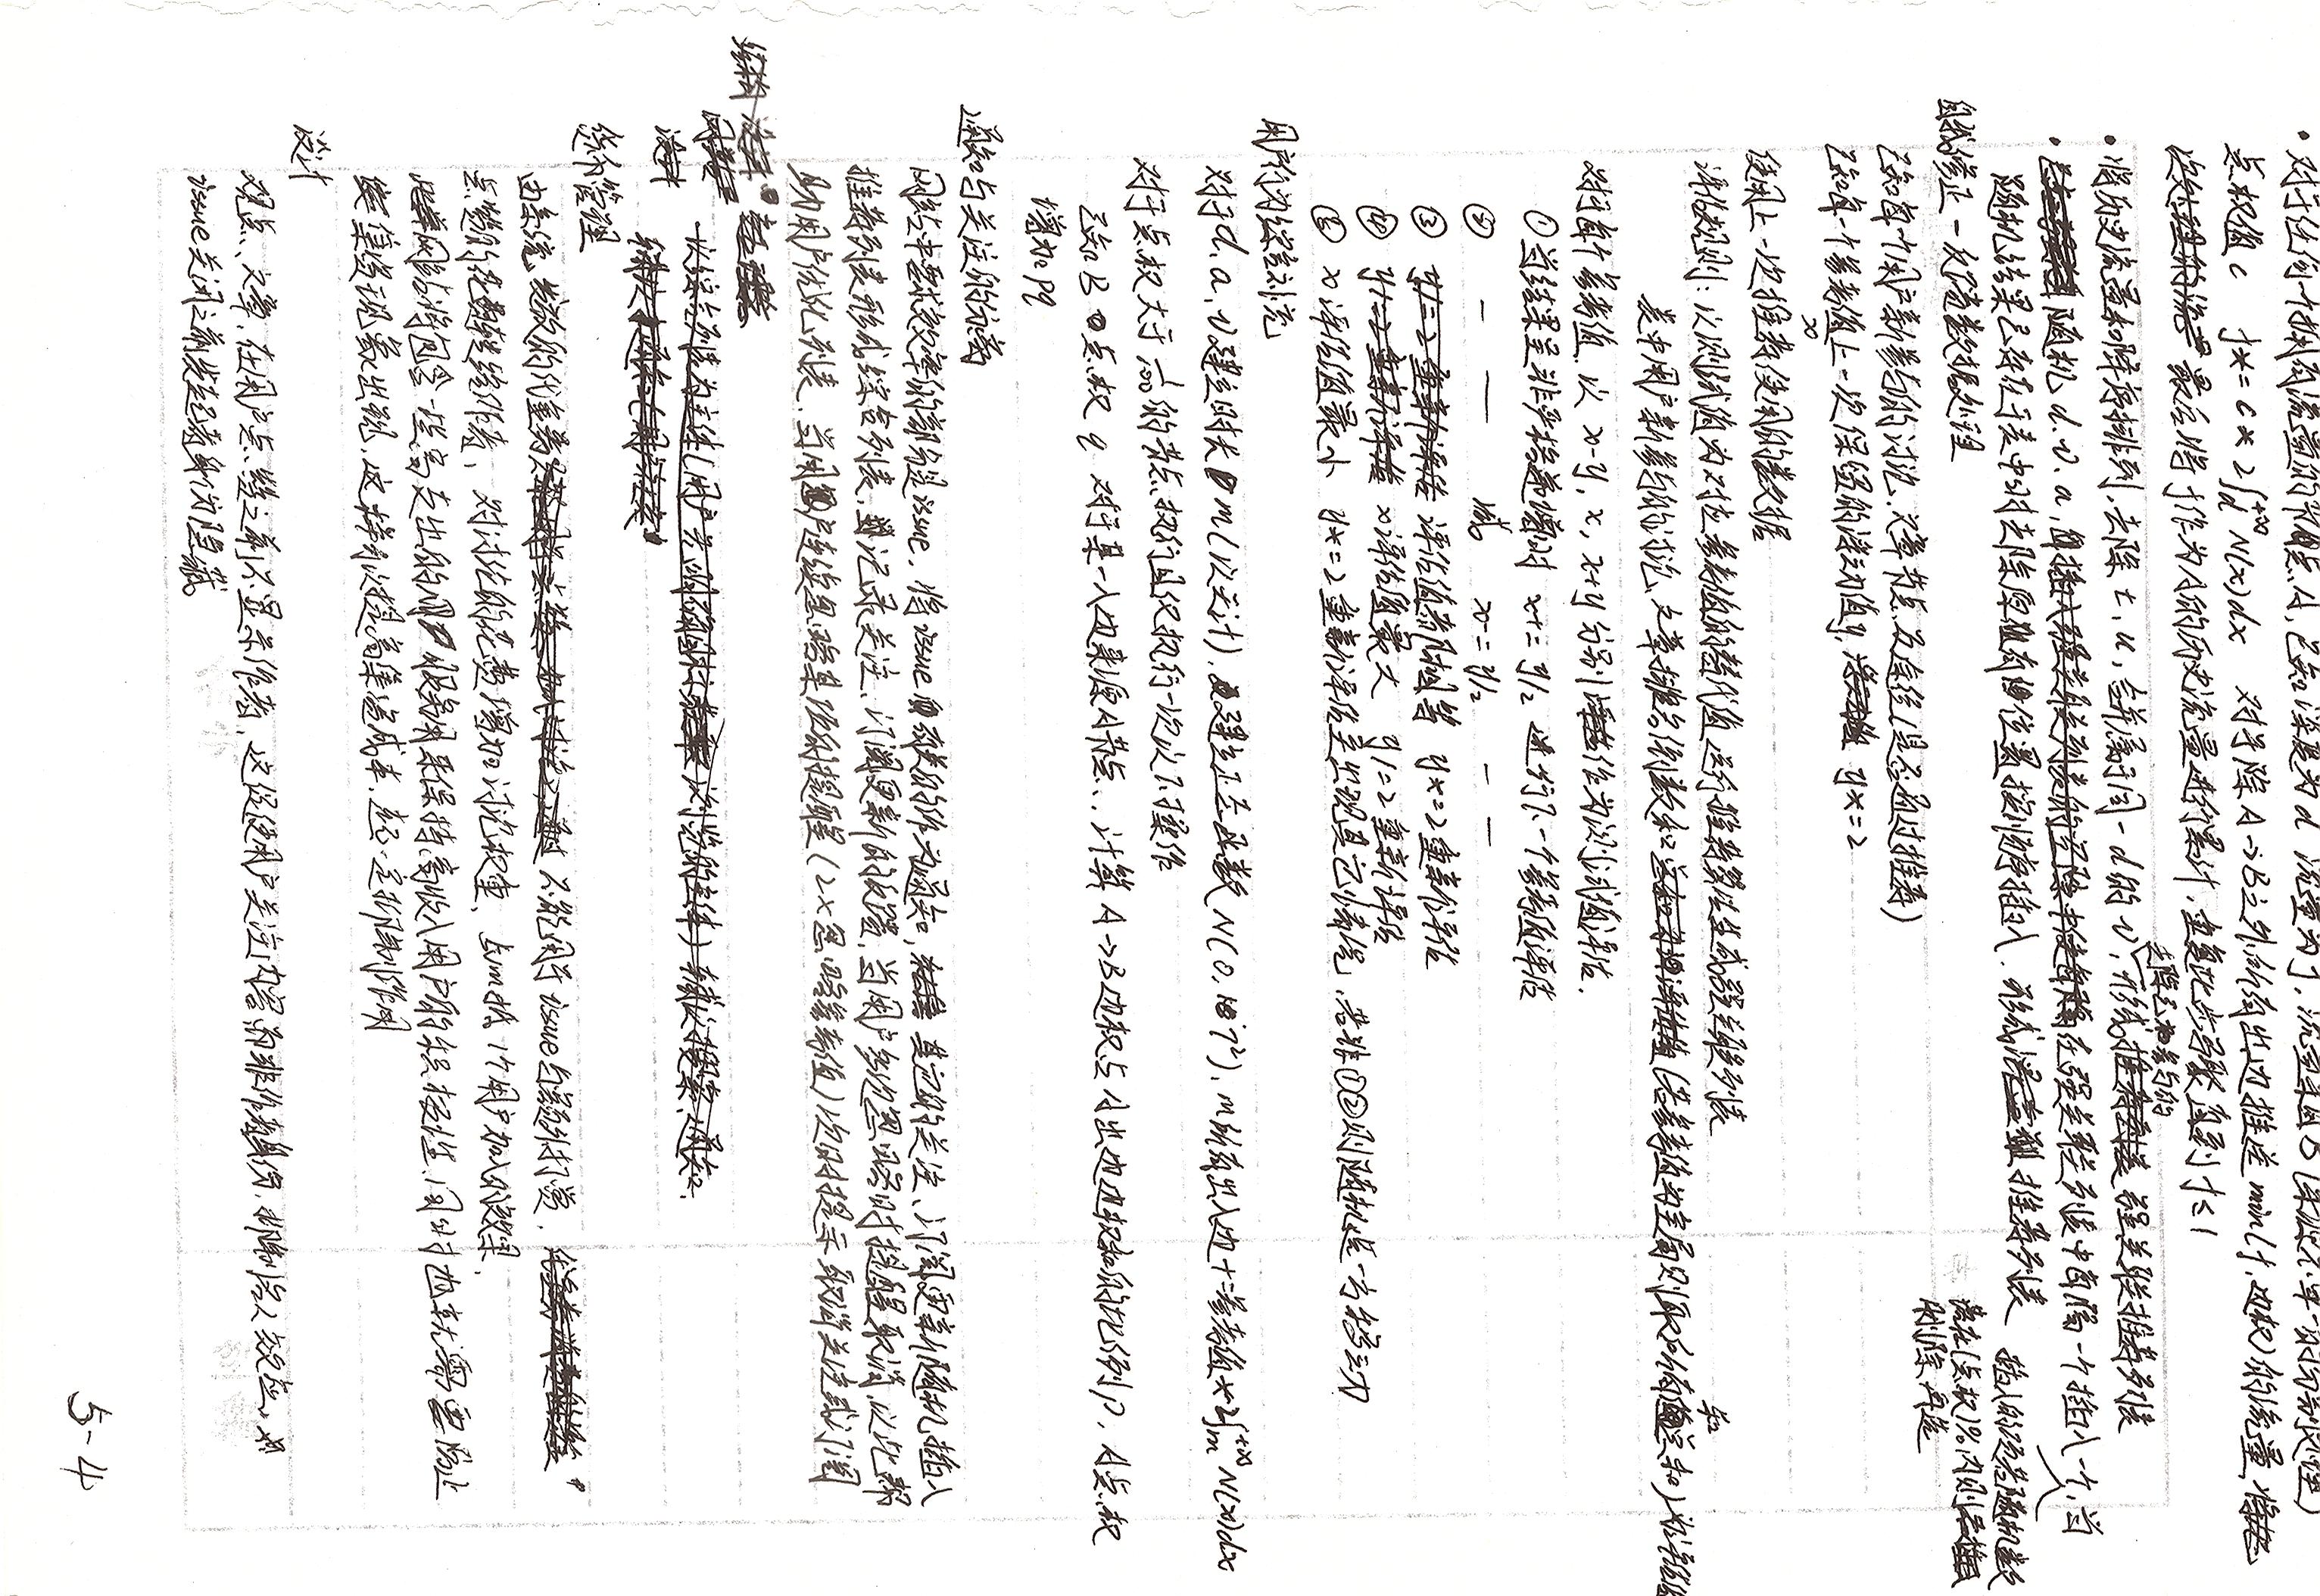 ·对于任何一个拥有流量的节点A,已知深度为d 流量为f,流量来自B(来源不单一的分别处理)
点权值c f*=c*2∫d+∞N(x)dx 对于除A→B之外所有出边推送min(f,边权)的流量,
最后将f作为A的历史流量进行累计,重复此步骤直到f≤1
去除已参与的
·将历史流量和降序排列,去除t,u,合并属于同一d的v,形成强关联推荐列表
·随机d.v.a,在强关联列表中每隔一个插入一个,当
随机结果已存在于表中时去除原有位置按顺序插入,形成推荐列表
插入的项若随机数
落在(点权)%内则
删除再选
自我修正-反馈数据处理
已知每个用户新参与的讨论、文章节点及途径(是否通过推荐)
已知每一个参考值x上一次保留的浮动值y, y*=2
使用上一次推荐使用的数据
评估规则:以测试值为对应参考值的替代值运行推荐算法生成强关联列表
表中用户新参与的讨论、文章排名倒数和(若参考值为全局则取所有和总和)为评估值
对于每个参考值,以x-y,x,x+y分别作为测试值评估.
①当结果呈非严格递增时 x+=y/2 进行下一个参考值评估
② — — 减 x-=y/2 — —
③ 评估值都相等 y*=2重新评估
④ x评估值最大 y/=2重新评估
⑤ x评估值最小 y*=2重新评估至出现其它情况,若非①②则随机选一方移动
用户行为综合补充
对于d,a,v建立时长m(以天计),建立正态函数N(0,7²),m所有出入边+=参考值*2∫m+∞N(x)dx
对于点权大于1/100的节点执行且仅执行一次以下操作
已知B点权q 对于某一入边来源A节点,计算A→B边权占A出边边权和的比例p,A点权
增加pq
通知与关注的分离
网站中要求效率的部分是issue,将issue有关的作为通知,其它的关注、订阅更新随机插入
推荐列表形成综合列表,记录关注、订阅更新的反馈,当用户多次忽略时提醒取消,以此帮
助用户优化列表,当用户连续忽略某项的提醒(2×忽略参考值)次时提示取消关注或订阅
货币管理
由系统发放的代金券不能用于issue与额外打赏,
点赞的花费转给作者,对讨论的花费增加讨论权重,与m抵1个用户加入的效果,
网站将包含一些高支出的服务用来保持高收入用户的积极性,同时也就需要防止
集资现象出现,这样可以提高集资成本,起一定抑制作用
设计
观点、文章,在用户点赞之前不显示作者,这促使用户关注内容而非作者身份,抑制名人效应,
issue关闭之前发起者身份隐藏
5-4